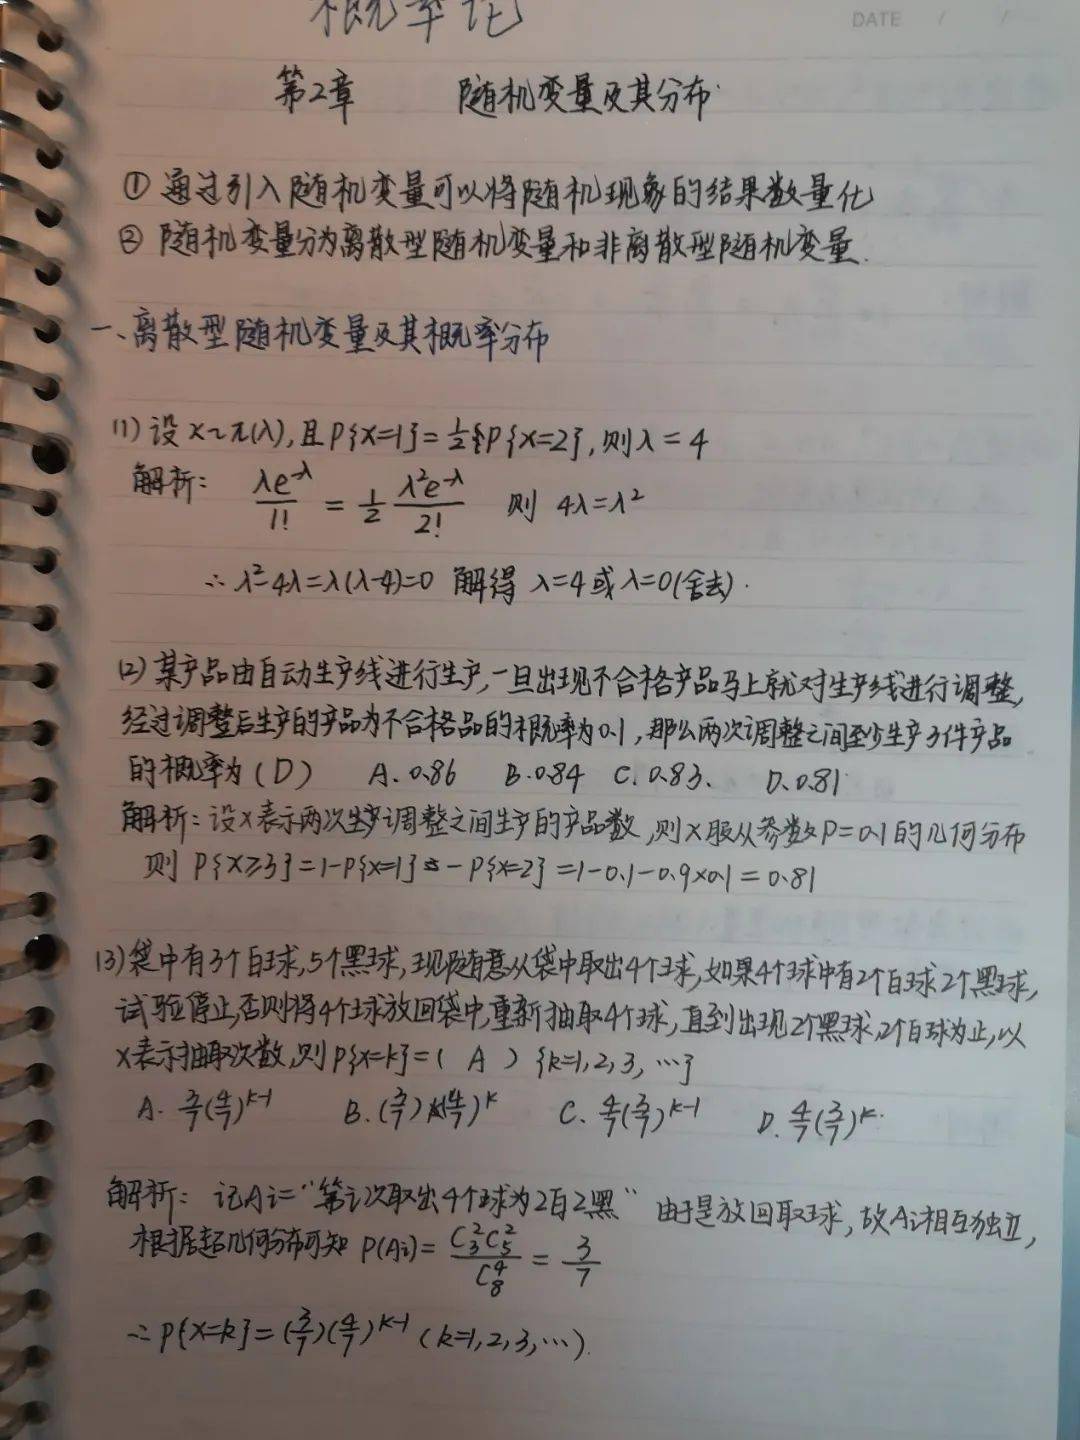 概率论
DATE / /
第2章 随机变量及其分布
① 通过引入随机变量可以将随机现象的结果数量化
② 随机变量分为离散型随机变量和非离散型随机变量.
一、离散型随机变量及其概率分布
(1) 设X~π(λ),且P{X=1}=½P{X=2},则λ=4
解析: λe^-λ/1! = 1/2 λ²e^-λ/2! 则 4λ=λ²
∴ λ²-4λ=λ(λ-4)=0 解得 λ=4或λ=0(舍去).
(2) 某产品由自动生产线进行生产,一旦出现不合格产品马上就对生产线进行调整,
经过调整后生产的产品为不合格品的概率为0.1,那么两次调整之间至少生产3件产品
的概率为(D) A.0.86 B.0.84 C.0.83. D.0.81
解析:设X表示两次生产调整之间生产的产品数,则X服从参数P=0.1的几何分布
则 P{X≥3}=1-P{X=1}-P{X=2}=1-0.1-0.9×0.1=0.81
(3)袋中有3个白球,5个黑球,现随意从袋中取出4个球,如果4个球中有2个白球2个黑球,
试验停止,否则将4个球放回袋中,重新抽取4个球,直到出现2个黑球,2个白球为止,以
X表示抽取次数,则P{X=k}=( A ) {k=1,2,3,…}
A. 3/7(4/7)^k-1 B.(3/7)(4/7)^k C. 4/7(3/7)^k-1 D. 4/7(3/7)^k.
解析: 记Ai="第i次取出4个球为2白2黑" 由于是放回取球,故Ai相互独立,
根据几何分布可知 P(Ai)= C₃²C₅²/C₈⁴ = 3/7
∴P{X=k}=(3/7)(4/7)^k-1 (k=1,2,3,…).